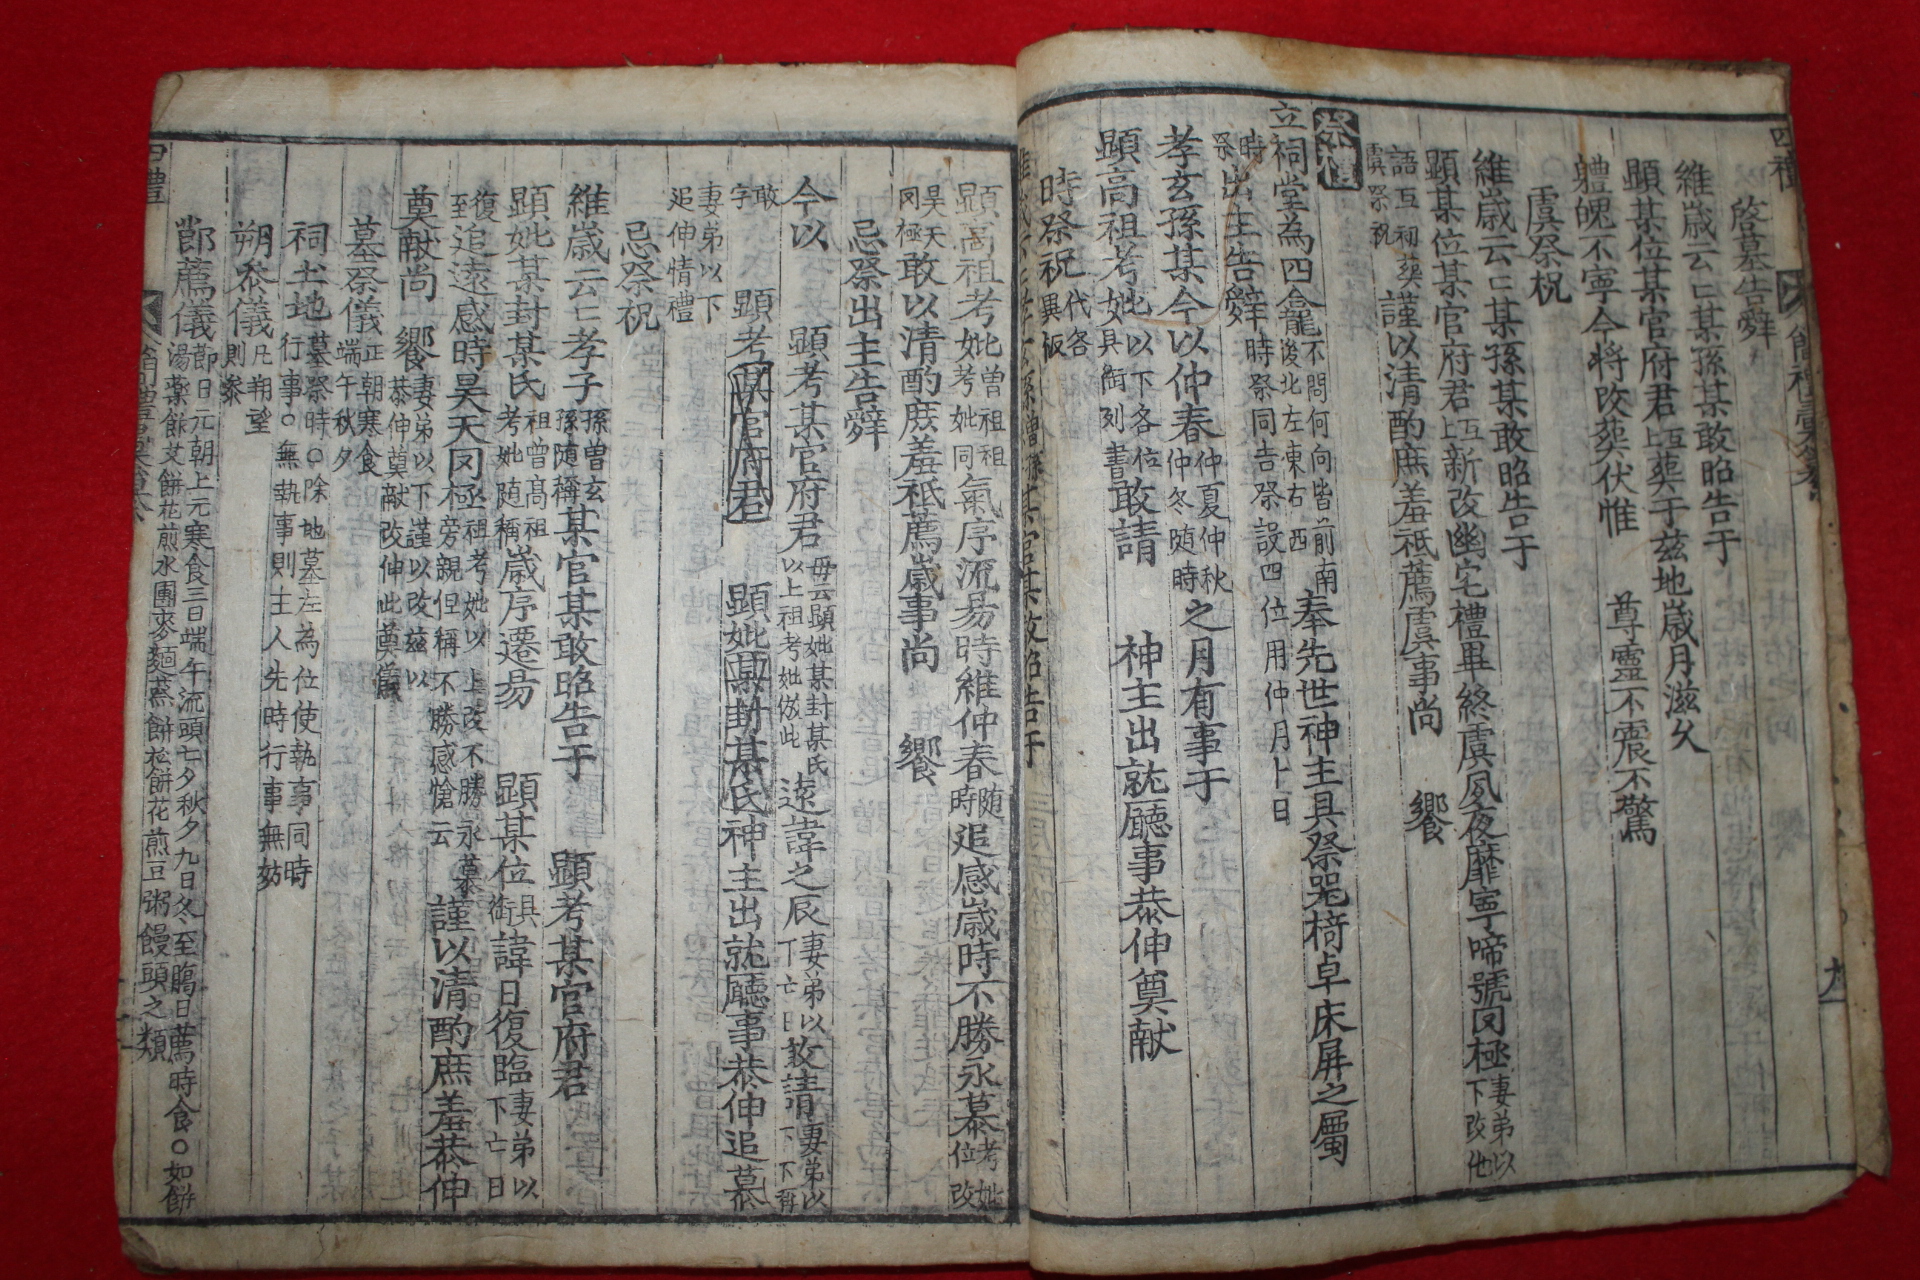 啓墓告辭
維歲云云某孫某敢昭告于
顯某位某官府君上葬于玆地歲月滋久
體魄不寧今將改葬伏惟 尊靈不震不驚
虞祭祝
維歲云云某孫某敢昭告于
顯某位某官府君新改幽宅禮畢終虞夙夜靡寧啼號罔極妻弟以下改他
語互初葬虞祭祝謹以清酌庶羞祗薦虞事尚 饗
祭禮
立祠堂為四龕不問何向皆前南後北左東右西奉先世神主具祭器椅卓床屛之屬
時祭出主告辭時祭同告祭設四位用仲月上日
孝玄孫某今以仲春仲夏仲秋仲冬随時之月有事于
顯高祖考妣以下各位具銜列書敢請 神主出就廳事恭伸奠献
時祭祝代各異板
顯高祖考妣曾祖祖考妣同氣序流易時維仲春随時追感歲時不勝永慕考妣位改
昊天罔極敢以清酌庶羞祗薦歲事尚 饗
忌祭出主告辭
今以 顯考某官府君母云顯妣某封某氏以上祖考妣倣此遠諱之辰妻弟以下亡日敢請妻弟以下不稱
敢字 顯考某官府君 顯妣某封某氏神主出就廳事恭伸追慕
妻弟以下追伸情禮
忌祭祝
維歲云云孝子孫曾玄孫随稱某官某敢昭告于 顯考某官府君
顯妣某封某氏祖曾高祖考妣随稱歲序遷易 顯某位具銜諱日復臨妻弟以下亡日
復至追遠感時昊天罔極祖考妣以上改不勝永慕旁親但稱不勝感愴云 謹以清酌庶羞恭伸
奠献尚 饗妻弟以下謹以改玆以恭伸奠献改伸此奠儀
墓祭儀正朝寒食端午秋夕
祠土地墓祭時○除地墓左為位使執事同時行事○無執事則主人先時行事無妨
朔參儀凡朔望則參
節薦儀節日元朝上元寒食三日端午流頭七夕秋夕九日冬至臘日薦時食○如餅湯藥飯艾餅花煎水團麥麵蒸餅松餅花煎豆粥饅頭之類